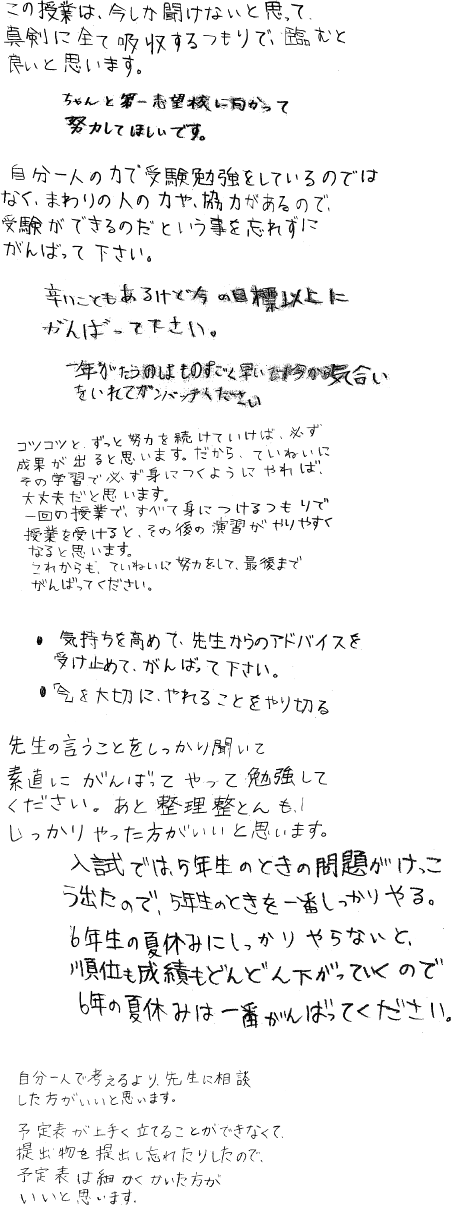 この授業は、今しか聞けないと思って、
真剣に全て吸収するつもりで、臨むと
良いと思います。
ちゃんと第一志望校に向かって
努力してほしいです。
自分一人の力で受験勉強をしているのでは
なく、まわりの人の力や、協力があるので、
受験ができるのだという事を忘れずに
がんばって下さい。
辛いこともあるけど今の目標以上に
がんばって下さい。
一年がたつのはものすごく早いので今から気合い
をいれてガンバッテください
コツコツと、ずっと努力を続けていけば、必ず
成果が出ると思います。だから、ていねいに
その学習で必ず身につくようにやれば、
大丈夫だと思います。
一回の授業で、すべて身につけるつもりで
授業を受けると、その後の演習がやりやすく
なると思います。
これからも、ていねいに努力をして、最後まで
がんばってください。
• 気持ちを高めて、先生からのアドバイスを
受け止めて、がんばって下さい。
• 今を大切に、やれることをやり切る
先生の言うことをしっかり聞いて
素直にがんばってやって勉強して
ください。あと整理整とんも、
しっかりやった方がいいと思います。
入試では、5年生のときの問題がけっこ
う出たので、5年生のときを一番しっかりやる。
6年生の夏休みにしっかりやらないと、
順位も成績もどんどん下がっていくので
6年の夏休みは一番がんばってください。
自分一人で考えるより、先生に相談
した方がいいと思います。
予定表が上手く立てることができなくて、
提出物を提出し忘れたりしたので、
予定表は細かくかいた方が
いいと思います。